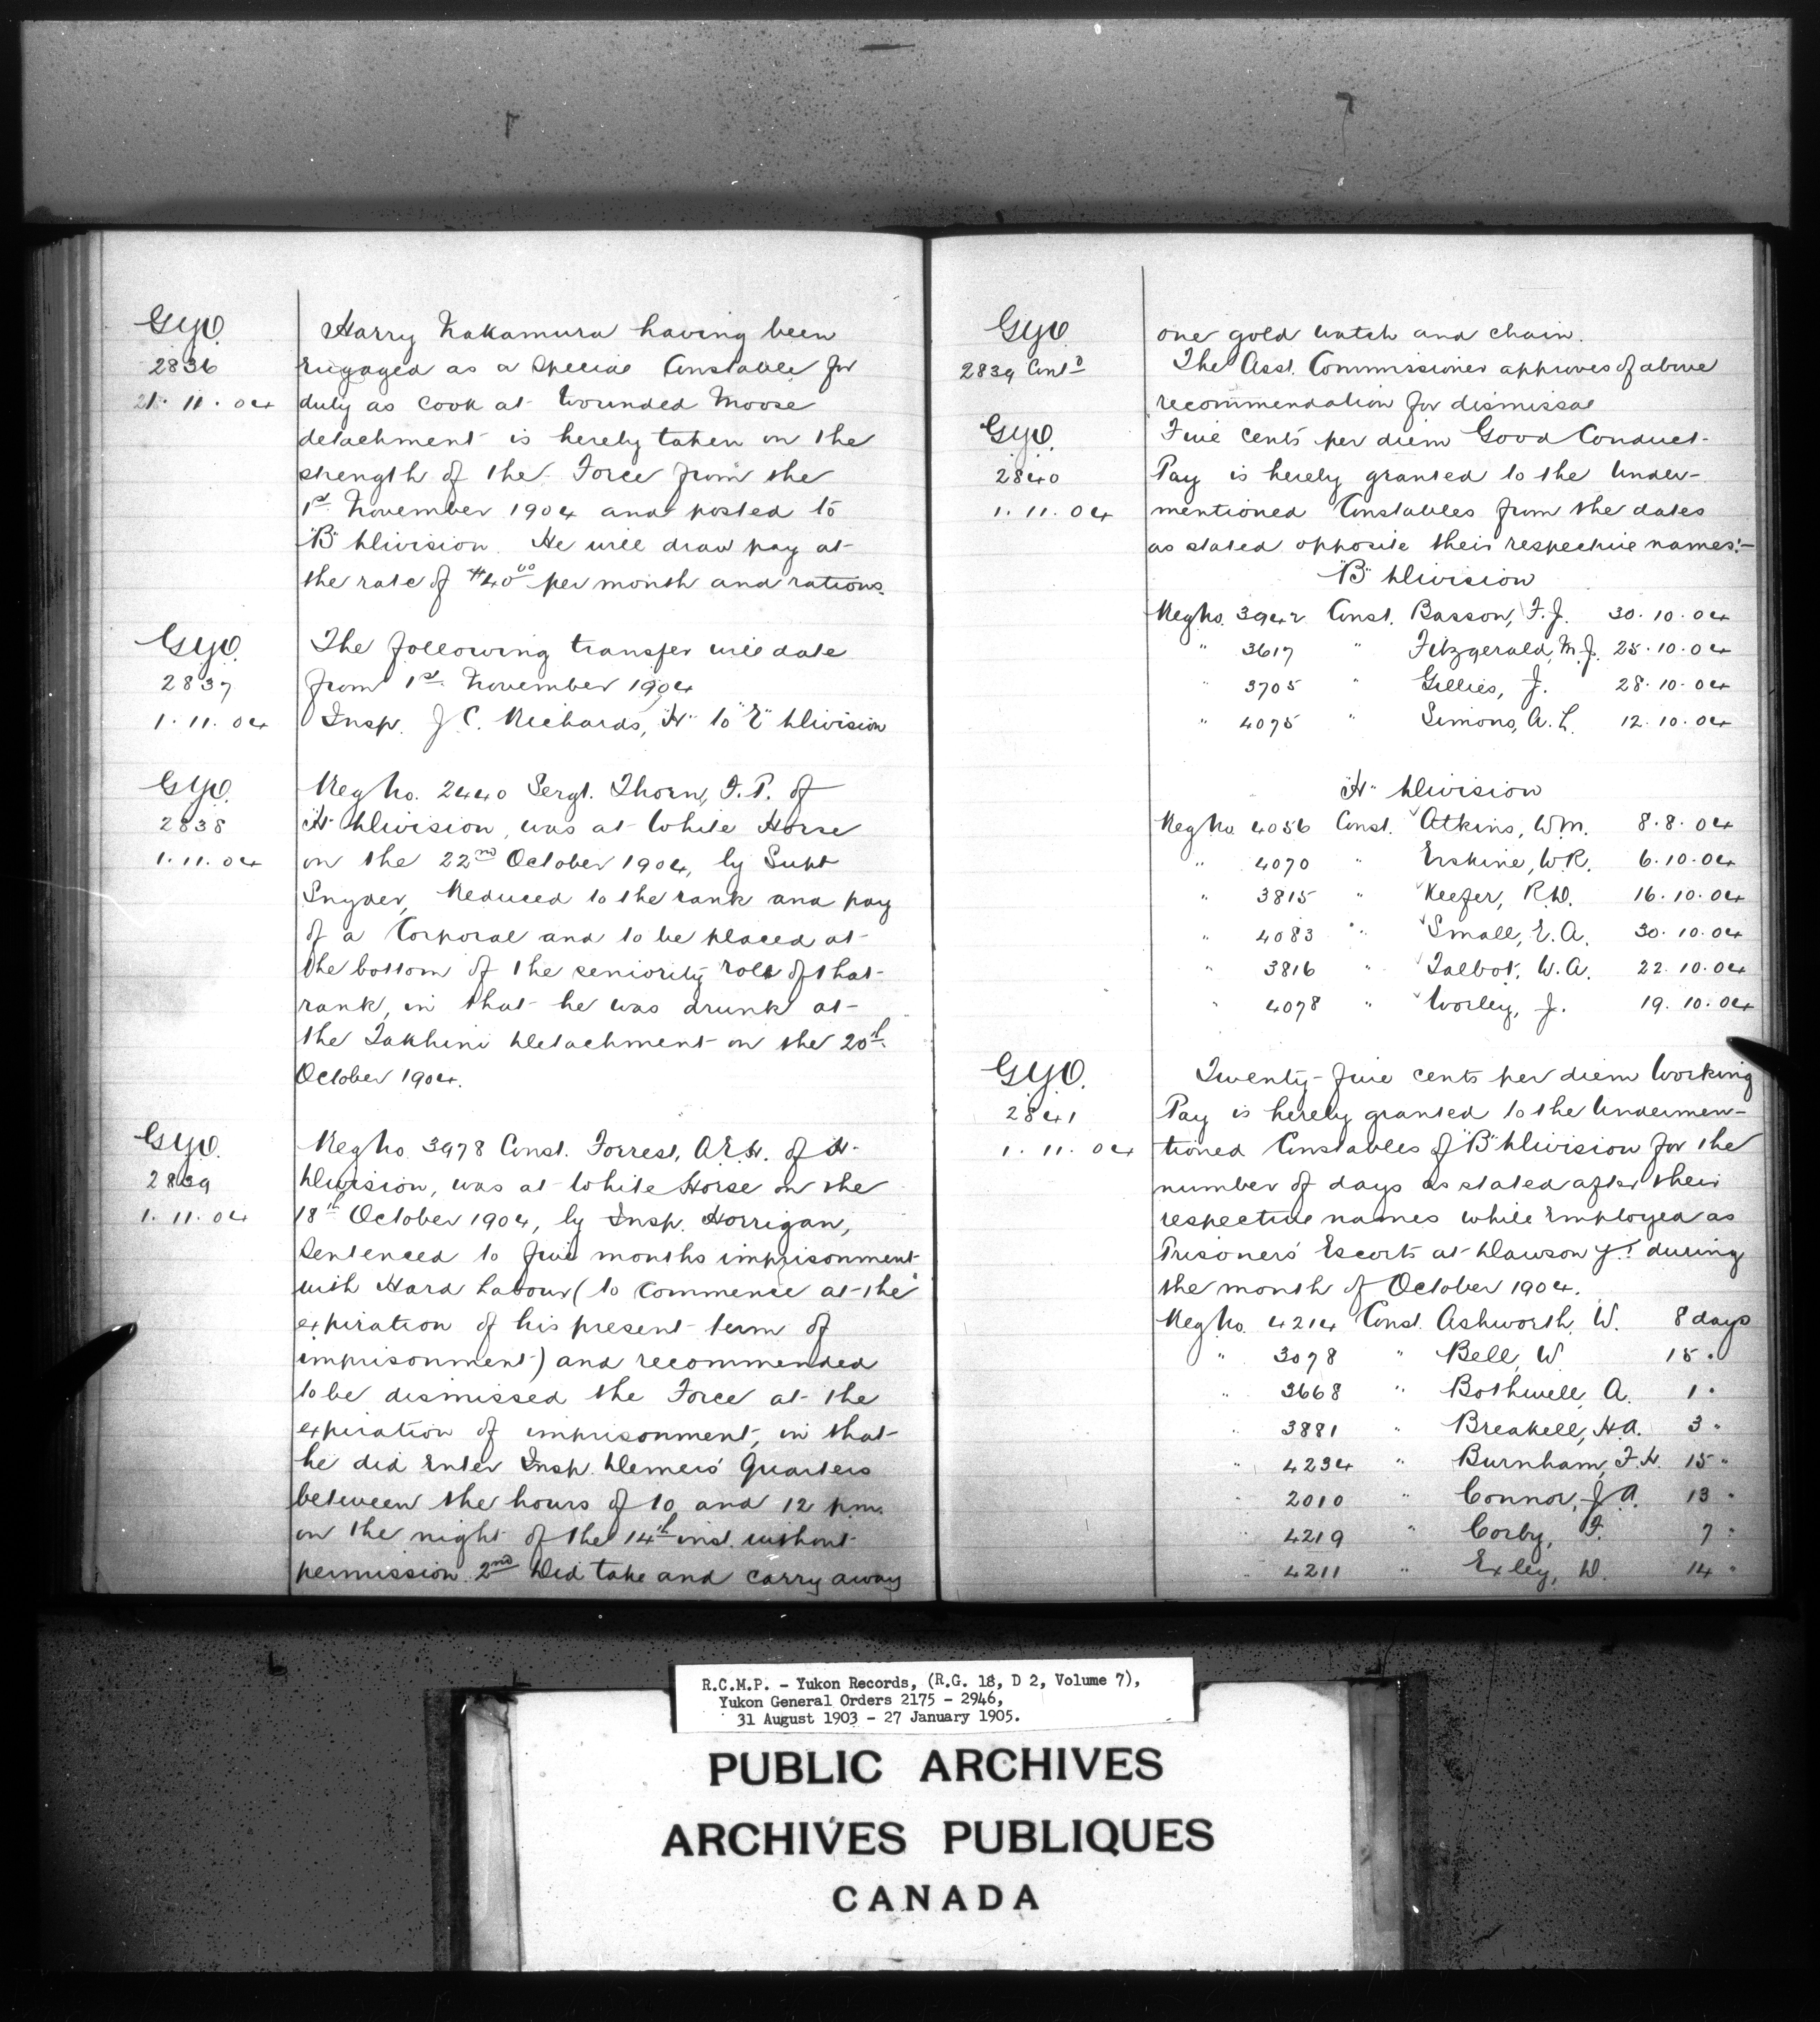 G.Y.O.
2836
21. 11. 04
Harry Nakamura having been
engaged as a Special Constable for
duty as Cook at Wounded Moose
detachment is hereby taken on the
strength of the Force from the
1st November 1904 and posted to
"B" Division. He will draw pay at
the rate of $40.00 per month and rations.
G.Y.O.
2837
1. 11. 04
The following transfer will date
from 1st November 1904
Insp. J. C. Richards, "H" to "E" Division
G.Y.O.
2838
1. 11. 04
Reg No. 2440 Sergt. Thorn, F. P. of
"H" Division, was at White Horse
on the 22nd October 1904, by Supt
Snyder, Reduced to the rank and pay
of a Corporal and to be placed at
the bottom of the seniority roll of that
rank, in that he was drunk at
the Takhini Detachment on the 20th
October 1904.
G.Y.O.
2839
1. 11. 04
Reg No. 3978 Const. Forrest, A.E.H. of H.
Division, was at White Horse on the
18th October 1904, by Insp. Horrigan,
Sentenced to five months imprisonment
with Hard Labour (to Commence at the
expiration of his present term of
imprisonment) and recommended
to be dismissed the Force at the
expiration of imprisonment, in that
he did Enter Insp. Demers' Quarters
between the hours of 10 and 12 p.m.
on the night of the 14th inst. without
permission. 2nd Did take and carry away
G.Y.O.
2839 Cont'd
one gold watch and chain.
The Asst. Commissioner approves of above
recommendation for dismissal
G.Y.O.
2840
1. 11. 04
Five Cents per diem Good Conduct
Pay is hereby granted to the Under-
mentioned Constables from the dates
as stated opposite their respective names:-
"B" Division
Reg No. 3942 Const. Basson, F. J. 30. 10. 04
" 3617 " Fitzgerald, M. J. 25. 10. 04
" 3705 " Gillies, J. 28. 10. 04
" 4075 " Simons, A. L. 12. 10. 04
"H" Division
Reg No. 4056 Const. Atkins, W.M. 8. 8. 04
" 4070 " Erskine, W.R. 6. 10. 04
" 3815 " Keefer, R.D. 16. 10. 04
" 4083 " Small, E. A. 30. 10. 04
" 3816 " Talbot, W. A. 22. 10. 04
" 4078 " Worley, J. 19. 10. 04
G.Y.O.
2841
1. 11. 04
Twenty-five cents per diem Working
Pay is hereby granted to the Undermen-
tioned Constables of "B" Division for the
number of days as stated after their
respective names while Employed as
Prisoners' Escorts at Dawson Y.T. during
the month of October 1904.
Reg No. 4214 Const. Ashworth, W. 8 days
" 3078 " Bell, W 15 "
" 3668 " Bothwell, A. 1 "
" 3881 " Breakell, H.A. 3 "
" 4234 " Burnham, F.H. 15 "
" 2010 " Connor, J. A. 13 "
" 4219 " Corby, F. 7 "
" 4211 " Exley, D. 14 "
R.C.M.P. - Yukon Records, (R.G. 18, D 2, Volume 7),
Yukon General Orders 2175 - 2946,
31 August 1903 - 27 January 1905.
PUBLIC ARCHIVES
ARCHIVES PUBLIQUES
CANADA